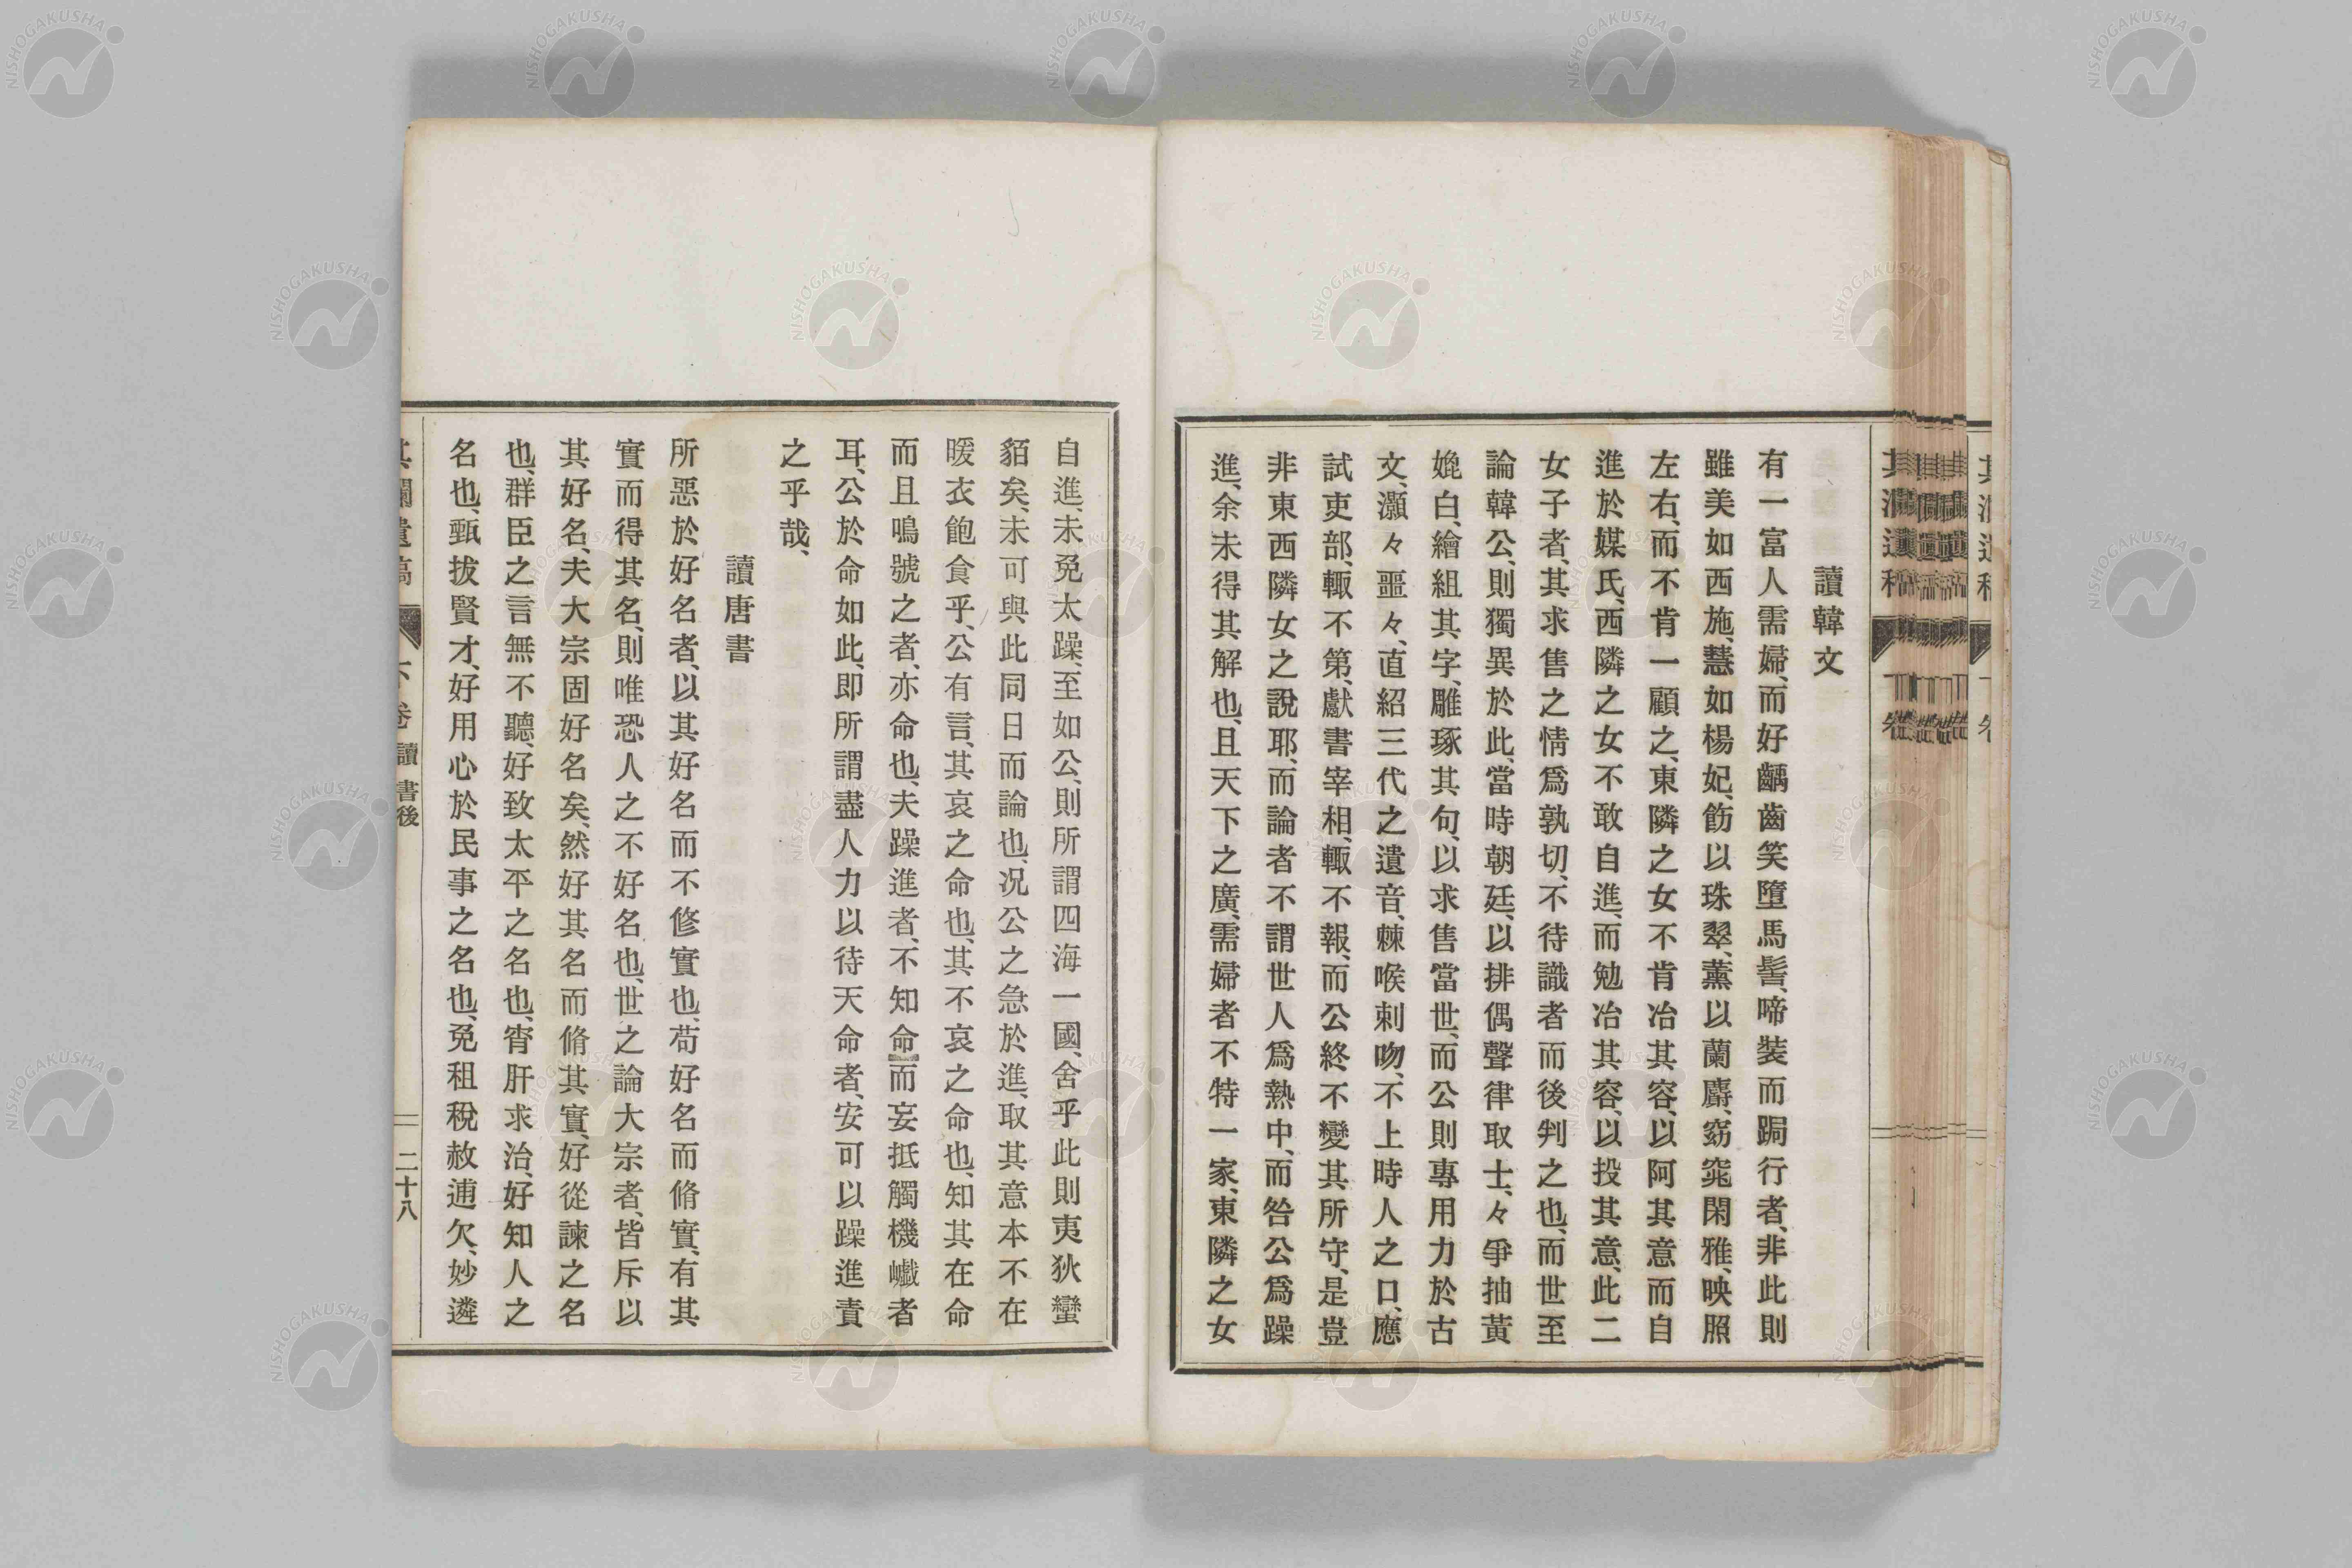 讀韓文
有一富人需婦、而好齲齒笑墮馬髻、啼裝而跼行者、非此則
雖美如西施、慧如楊妃、飭以珠翠、薰以蘭麝、窈窕閑雅、映照
左右、而不肯一顧之、東隣之女不肯冶其容、以阿其意而自
進於媒氏、西隣之女不敢自進、而勉冶其容、以投其意、此二
女子者、其求售之情爲孰切、不待識者而後判之也、而世至
論韓公、則獨異於此、當時朝廷、以排偶聲律取士、々爭抽黃
媲白、繪組其字、雕琢其句、以求售當世、而公則專用力於古
文、灝々噩々、直紹三代之遺音、棘喉刺吻、不上時人之口、應
試吏部、輙不第、獻書宰相、輙不報、而公終不變其所守、是豈
非東西隣女之說耶、而論者不謂世人爲熱中、而咎公爲躁
進、余未得其解也、且天下之廣、需婦者不特一家、東隣之女
自進、未免太躁、至如公、則所謂四海一國、舍乎此則夷狄蠻
貊矣、未可與此同日而論也、况公之急於進、取其意本不在
暖衣飽食乎、公有言、其哀之命也、其不哀之命也、知其在命
而且鳴號之者、亦命也、夫躁進者、不知命而妄抵觸機巇者
耳、公於命如此、即所謂盡人力以待天命者、安可以躁進責
之乎哉、
讀唐書
所惡於好名者、以其好名而不修實也、苟好名而脩實、有其
實而得其名、則唯恐人之不好名也、世之論大宗者、皆斥以
其好名、夫大宗固好名矣、然好其名而脩其實、好從諫之名
也、群臣之言無不聽、好致太平之名也、宵肝求治、好知人之
名也、甄拔賢才、好用心於民事之名也、免租稅赦逋欠、妙遴
下卷 讀書後
二十八
NISHOGAKUSHA